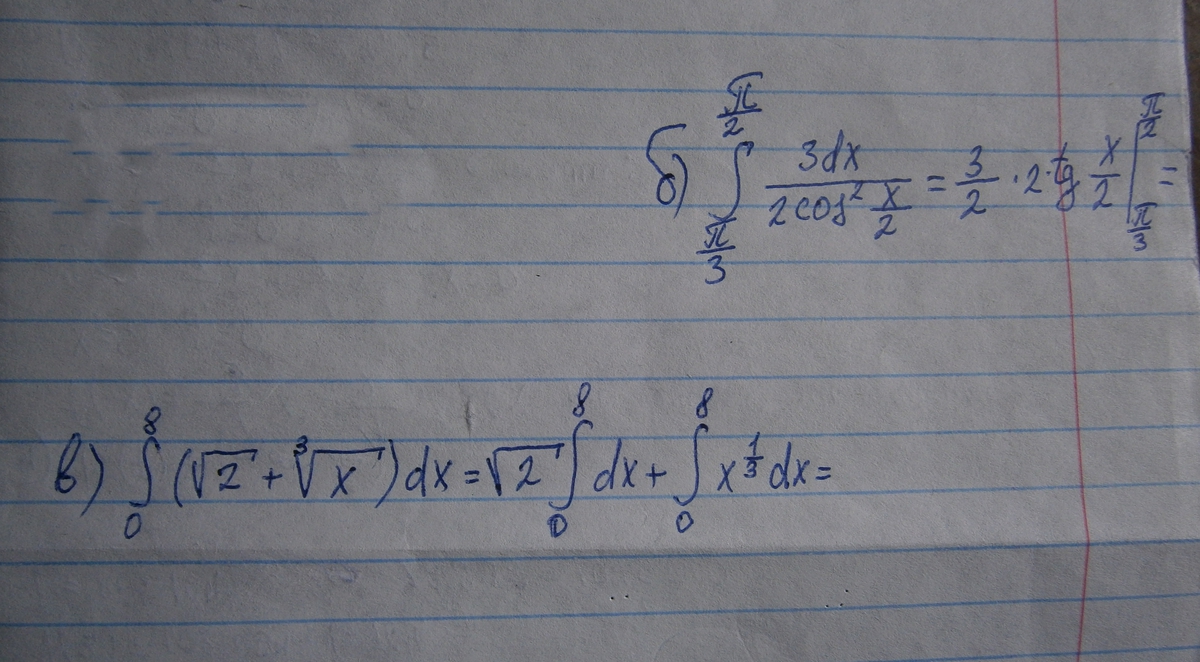 б) ∫_{π/3}^{π/2} 3dx/(2cos² x/2) = 3/2 · 2 · tg x/2 |_{π/3}^{π/2} =
в) ∫_0^8 (√2 + ∛x) dx = √2 ∫_0^8 dx + ∫_0^8 x^{1/3} dx =